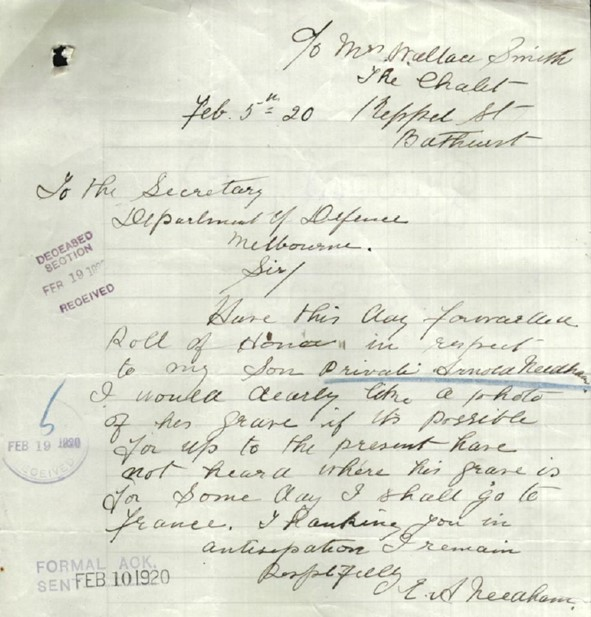 C/o Mrs Wallace Smith
The Chalet
Keppel St
Feb. 5th 20
Bathurst
To the Secretary
Department of Defence
Melbourne.
Sir/
DECEASED
SECTION
FEB 19 1920
RECEIVED
Have this day forwarded
Roll of Honor in respect
to my Son Private Arnold Needham.
I would dearly like a photo
of his grave if its possible
for up to the present have
not heard where his grave is
for Some day I shall go to
France. Thanking you in
antisepation I remain
Respetfully
E. A Needham.
5
FEB 19 1920
RECEIVED
FORMAL ACK.
SENT FEB 10 1920